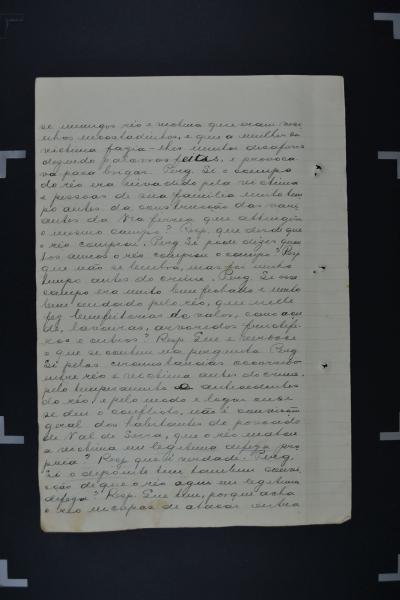 se inimigos réo e victima que eram visi
nhos encostadinhos, e que a mulher da
victima fazia-lhes muitos desaforos
digundo palavras feias, e provoca
va para brigar. Perg. Si o campo
do réo era invadido pela victima
e pessoas de sua familia muito tem
po antes da construcção das
antes da Via ferrea que attingiu
o mesmo campo? Resp. que desde que
o réo comprou. Perg. Si póde dizer quan
tos annos o réo comprou o campo? Resp
que não se lembra, mas foi muito
tempo antes do crime. Perg. Si esse
campo era muito bem fechado e muito
bem cuidado pelo réo, que nelle
fez bemfeitorias de valor, como açu
de, lavouras, arvoredos fructife
ros e outros? Resp. Que é verdade
o que se contem na pergunta. Perg
Si pelas circumstancias occorridas
entre réo e victima antes do crime,
pelo temperamento e antecedentes
do réo, e pelo modo e logar onde
se deu o conflicto, não é convicção
geral dos habitantes do povoado
de Val de Serra, que o réo matou
a victima em legitima defeza pro
pria? Resp. que é verdade. Perg.
Si o depoente tem tambem convic
ção de que o réo agiu em legitima
defeza? Resp. Que tem, porque acha
o réo incapaz de atacar outra